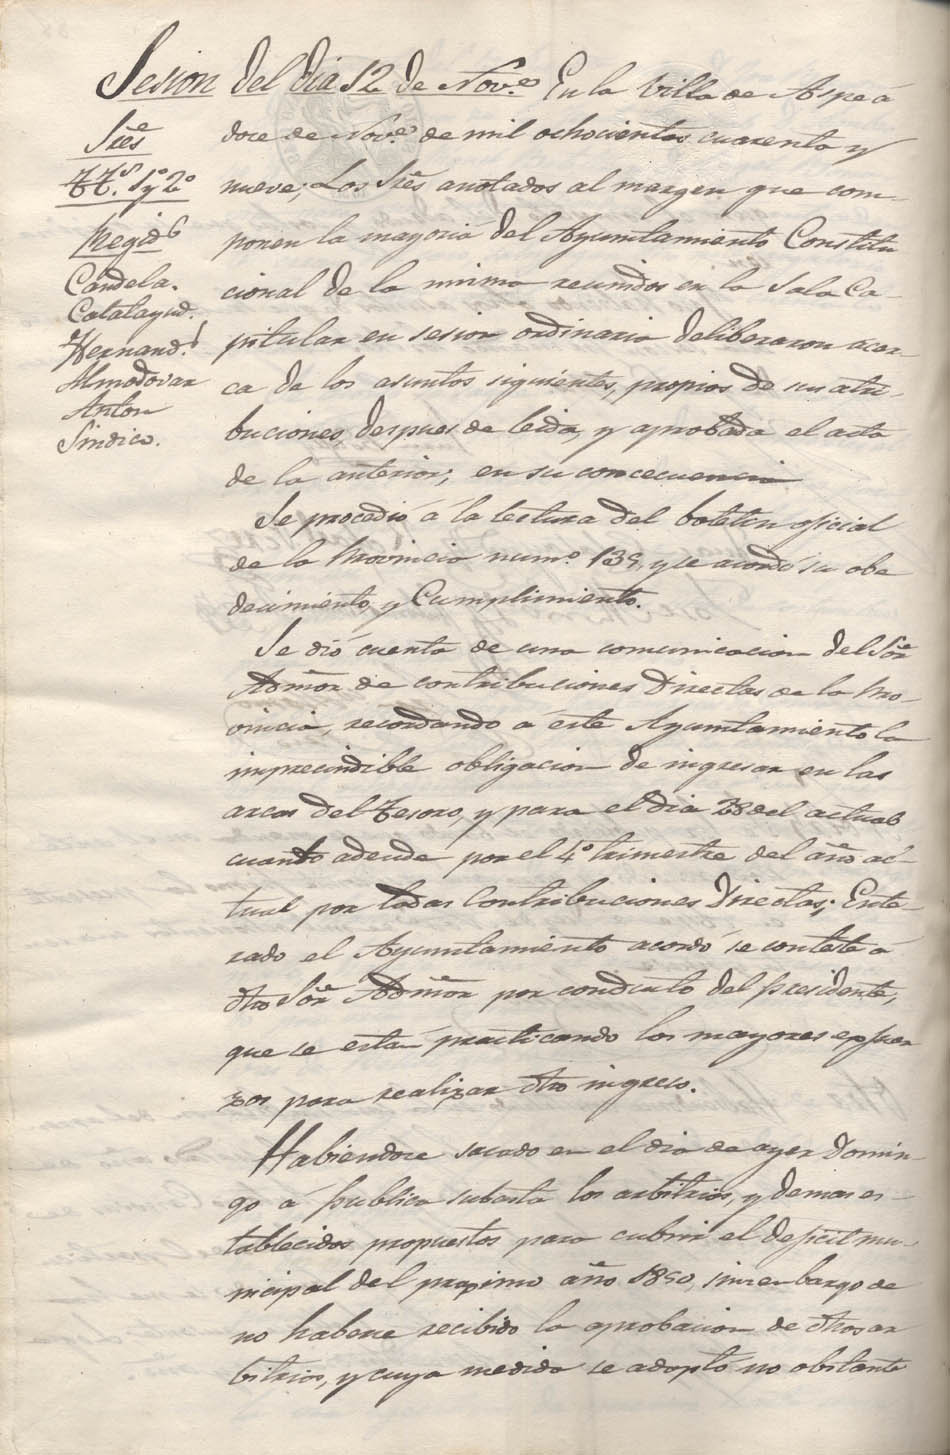 Sesion del dia 12 de Nov.e En la Villa de Aspe á
Sres
TT.s 1º y 2º
Regid.s
Candela.
Catalayud.
Hernand.s
Almodovar
Anton
Sindico.
doce de Nov.e de mil ochocientos cuarenta y
nueve; Los Sres anotados al margen que com-
ponen la mayoria del Ayuntamiento Constitu
cional de la misma reunidos en la Sala Ca-
pitular en sesion ordinaria deliberaron acer-
ca de los asuntos siguientes, propios de sus atri-
buciones, despues de leida, y aprobada el acta
de la anterior; en su concecuencia
Se procedió á la lectura del boletin oficial
de la Provincia num.º 135, y se acordó su obe
decimiento, y Cumplimiento.
Se dió cuenta de una comunicacion del Sor
Admor de contribuciones Directas de la Pro-
vincia, recordando á este Ayuntamiento la
imprecindible obligacion de ingresar en las
arcas del Tesoro, y para el dia 28 del actual
cuanto adeude por el 4º trimestre del año ac-
tual por todas Contribuciones Directas; Ente-
rado el Ayuntamiento acordó se conteste á
dho Sor Admor por conducto del presidente,
que se están practicando los mayores esfuer
zos para realizar dho ingreso.
Habiendose sacado en el dia de ayer Domin-
go á publica subasta los arbitrios, y demas es-
tablecidos propuestos para cubrir el deficit mu-
nicipal del proximo año 1850, sin embargo de
no haberse recibido la aprobacion de dhos ar
bitrios, y cuya medida se adoptó no obstante